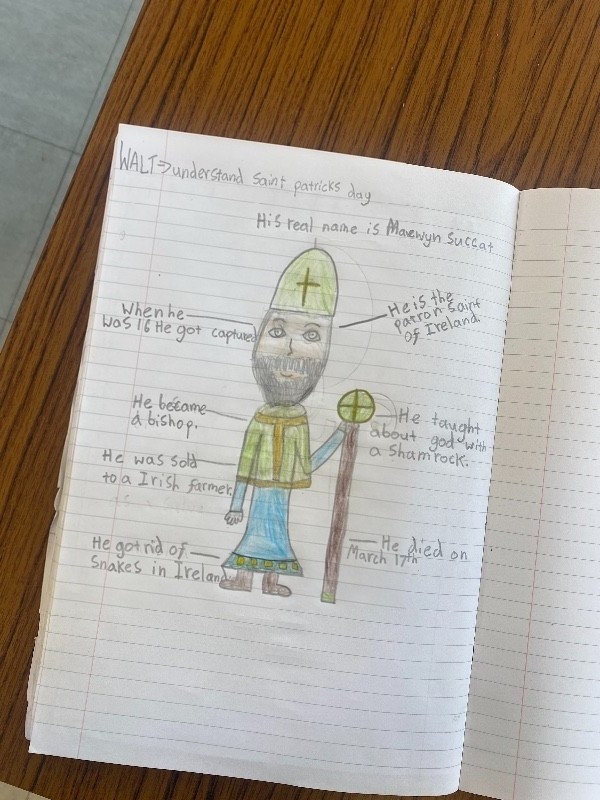 WALT→understand saint patricks day
His real name is Maewyn Succat
When he
was 16 He got captured
He is the
patron saint
of Ireland.
He became
a bishop.
He taught
about god with
a shamrock.
He was sold
to a Irish farmer.
He got rid of
Snakes in Ireland.
He died on
March 17th